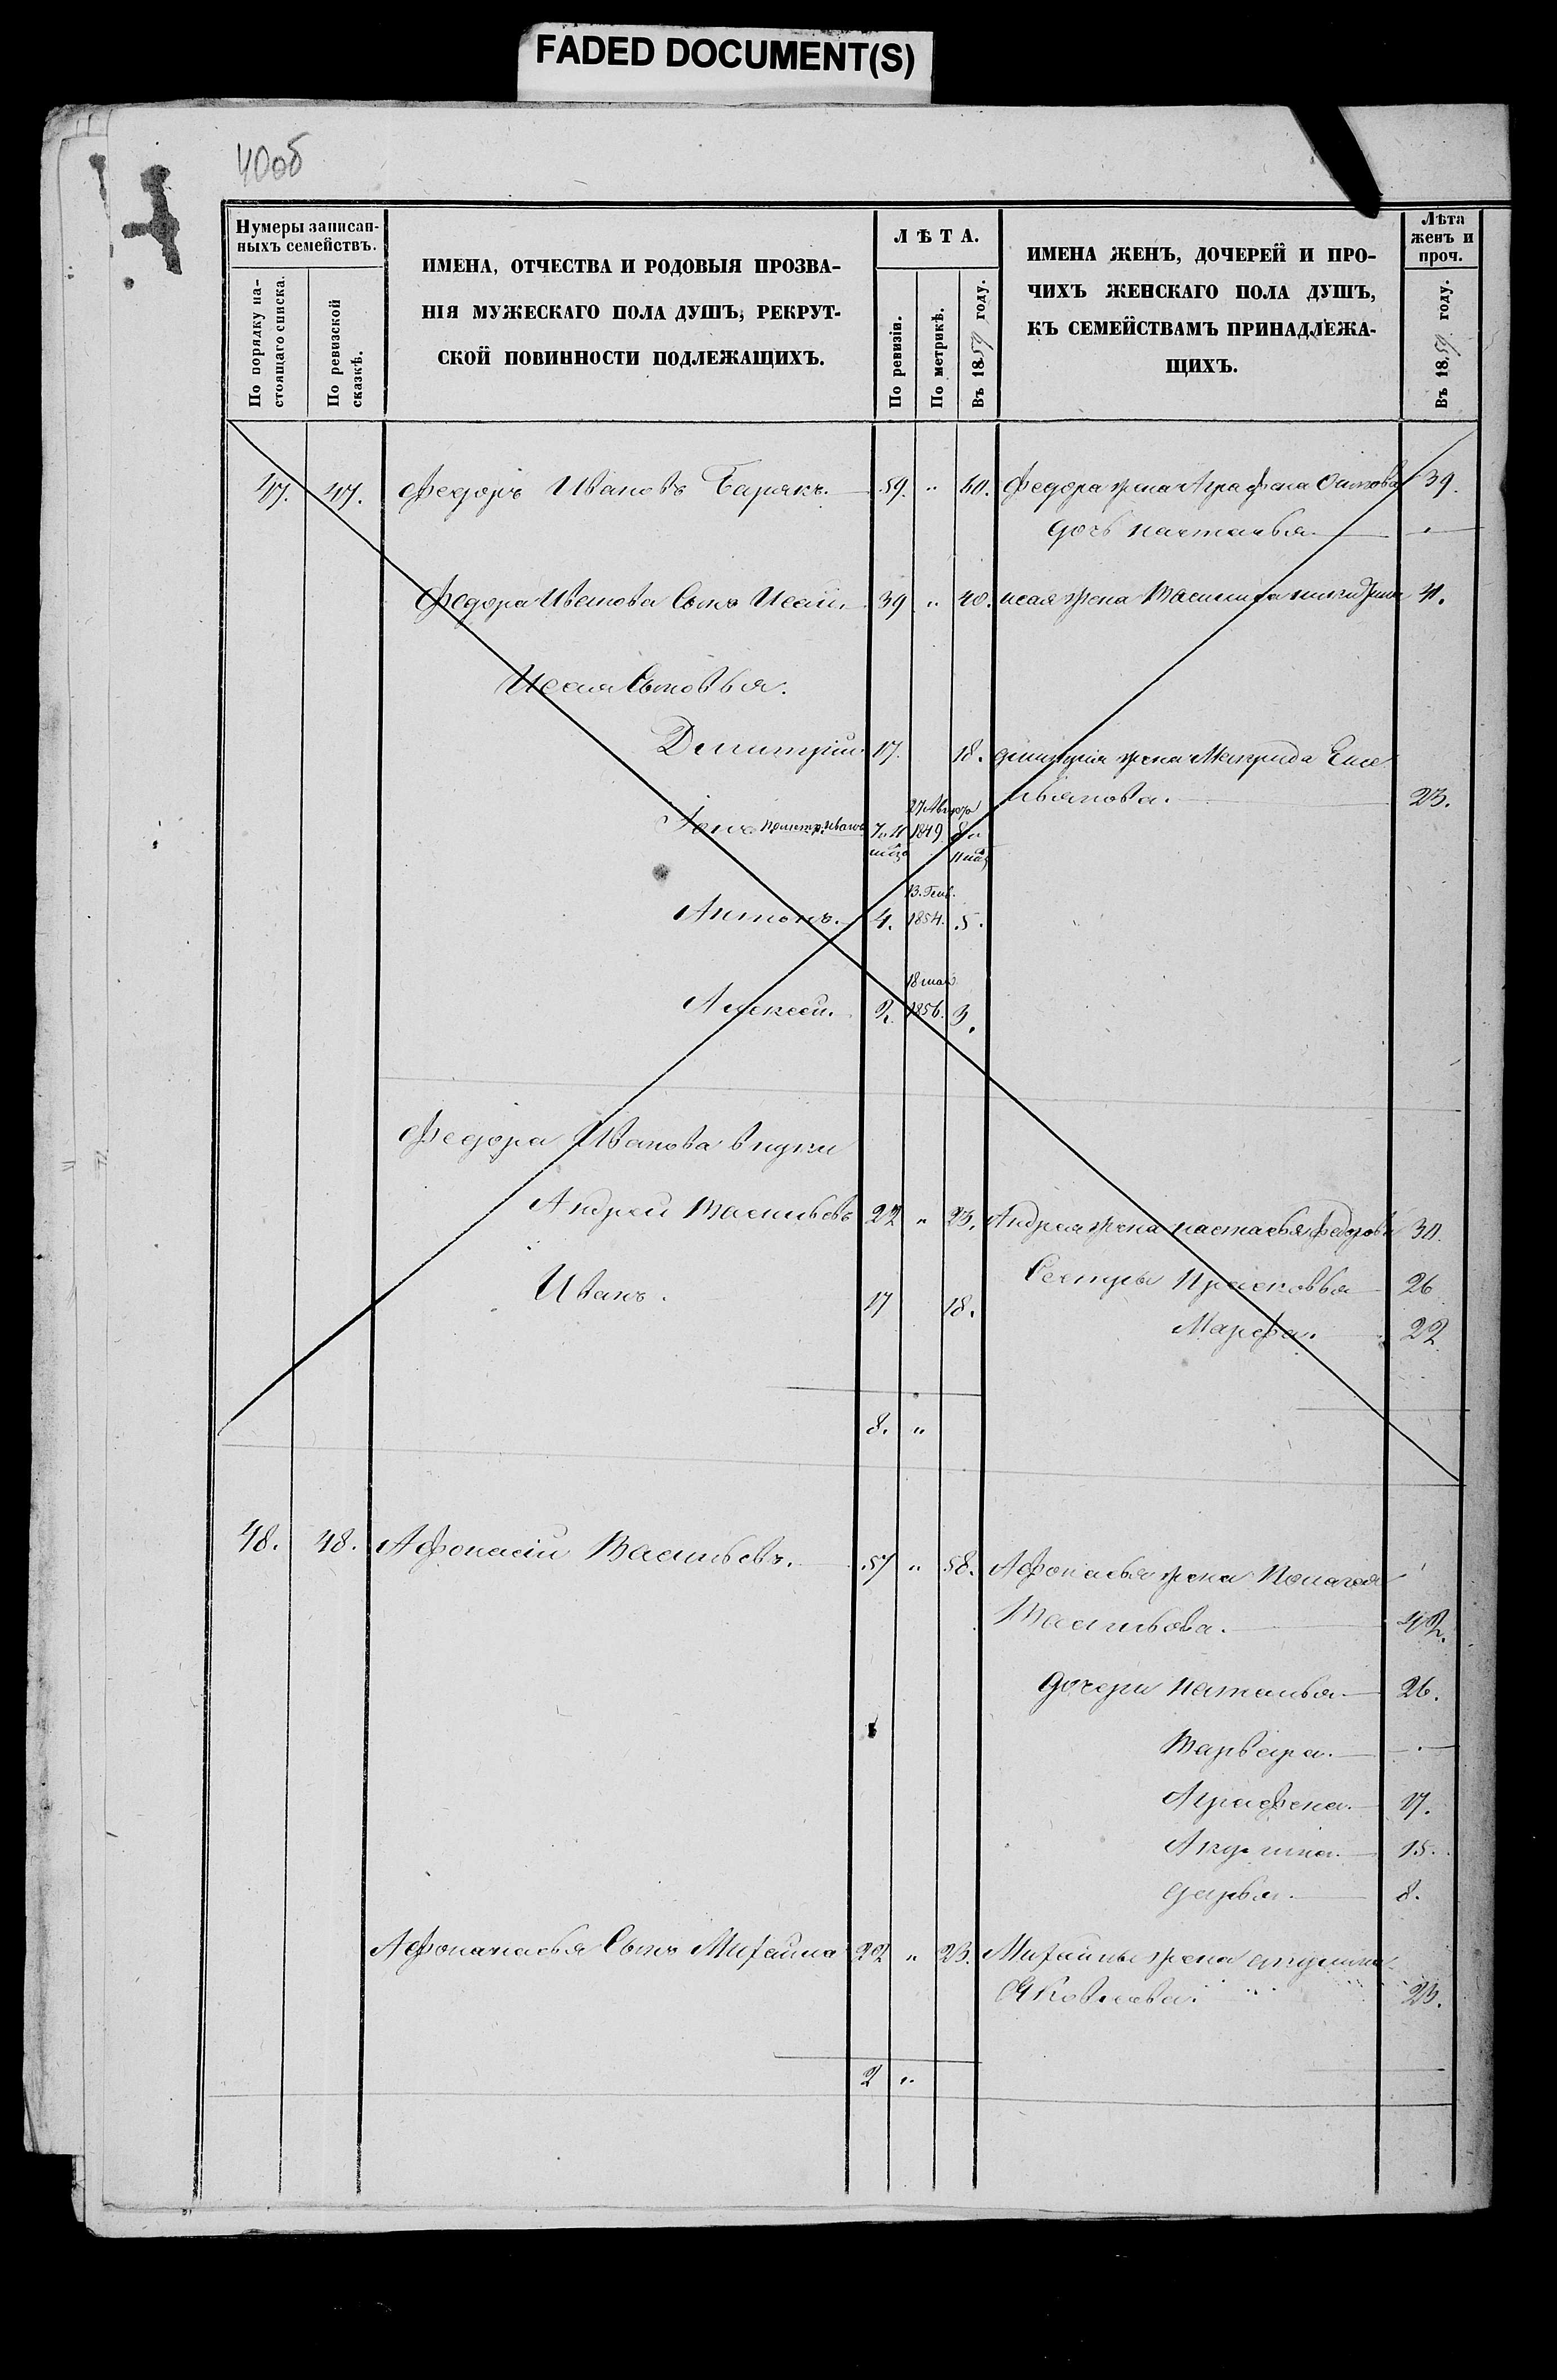 FADED DOCUMENT(S)
40об
Нумеры записан-
ныхъ семействъ.
По порядку на-
стоящаго списка.
По ревизской
сказкѣ.
ИМЕНА, ОТЧЕСТВА И РОДОВЫЯ ПРОЗВА-
НІЯ МУЖЕСКАГО ПОЛА ДУШЪ, РЕКРУТ-
СКОЙ ПОВИННОСТИ ПОДЛЕЖАЩИХЪ.
ЛѢТА.
По ревизіи.
По метрикѣ.
Въ 1859 году.
ИМЕНА ЖЕНЪ, ДОЧЕРЕЙ И ПРО-
ЧИХЪ ЖЕНСКАГО ПОЛА ДУШЪ,
КЪ СЕМЕЙСТВАМЪ ПРИНАДЛЕЖА-
ЩИХЪ.
Лѣта
женъ и
проч.
Въ 1859 году.
47. 47. Федоръ Ивановъ 59. " 60. Федора жена Аграфена 39.
дочь настасья
Федора Иванова Сынъ Исай 39 " 40. исая жена Василиса 41.
Исая Сыновья.
Дмитрій. 17. 18. дмитрія жена Макрида Еме
льянова. 23.
27 Августа
7 и 11 1849. 8 и
мѣс 11 мѣс
13. Генв.
Антонъ. 4. 1854. 5.
18 мая
Алексей. 2. 1856. 3.
Федора Иванова внуки
Андрей Васильевъ 22 " 23. Андрея жена настасья федорова 30.
Иванъ. 17 18. Сестры Прасковья 26
Марфа. 22
8. "
48. 48. Афонасій Васильевъ. 57 " 58. Афонасья жена Полагея
Васильева. 42.
дочери наталья 26.
Варвара.
Аграфена. 17.
Акулина. 15.
дарья. 8.
Афонанасья Сынъ Михайла 22 " 23. Михайлы жена акулина
Яковлева. 23.
2 "